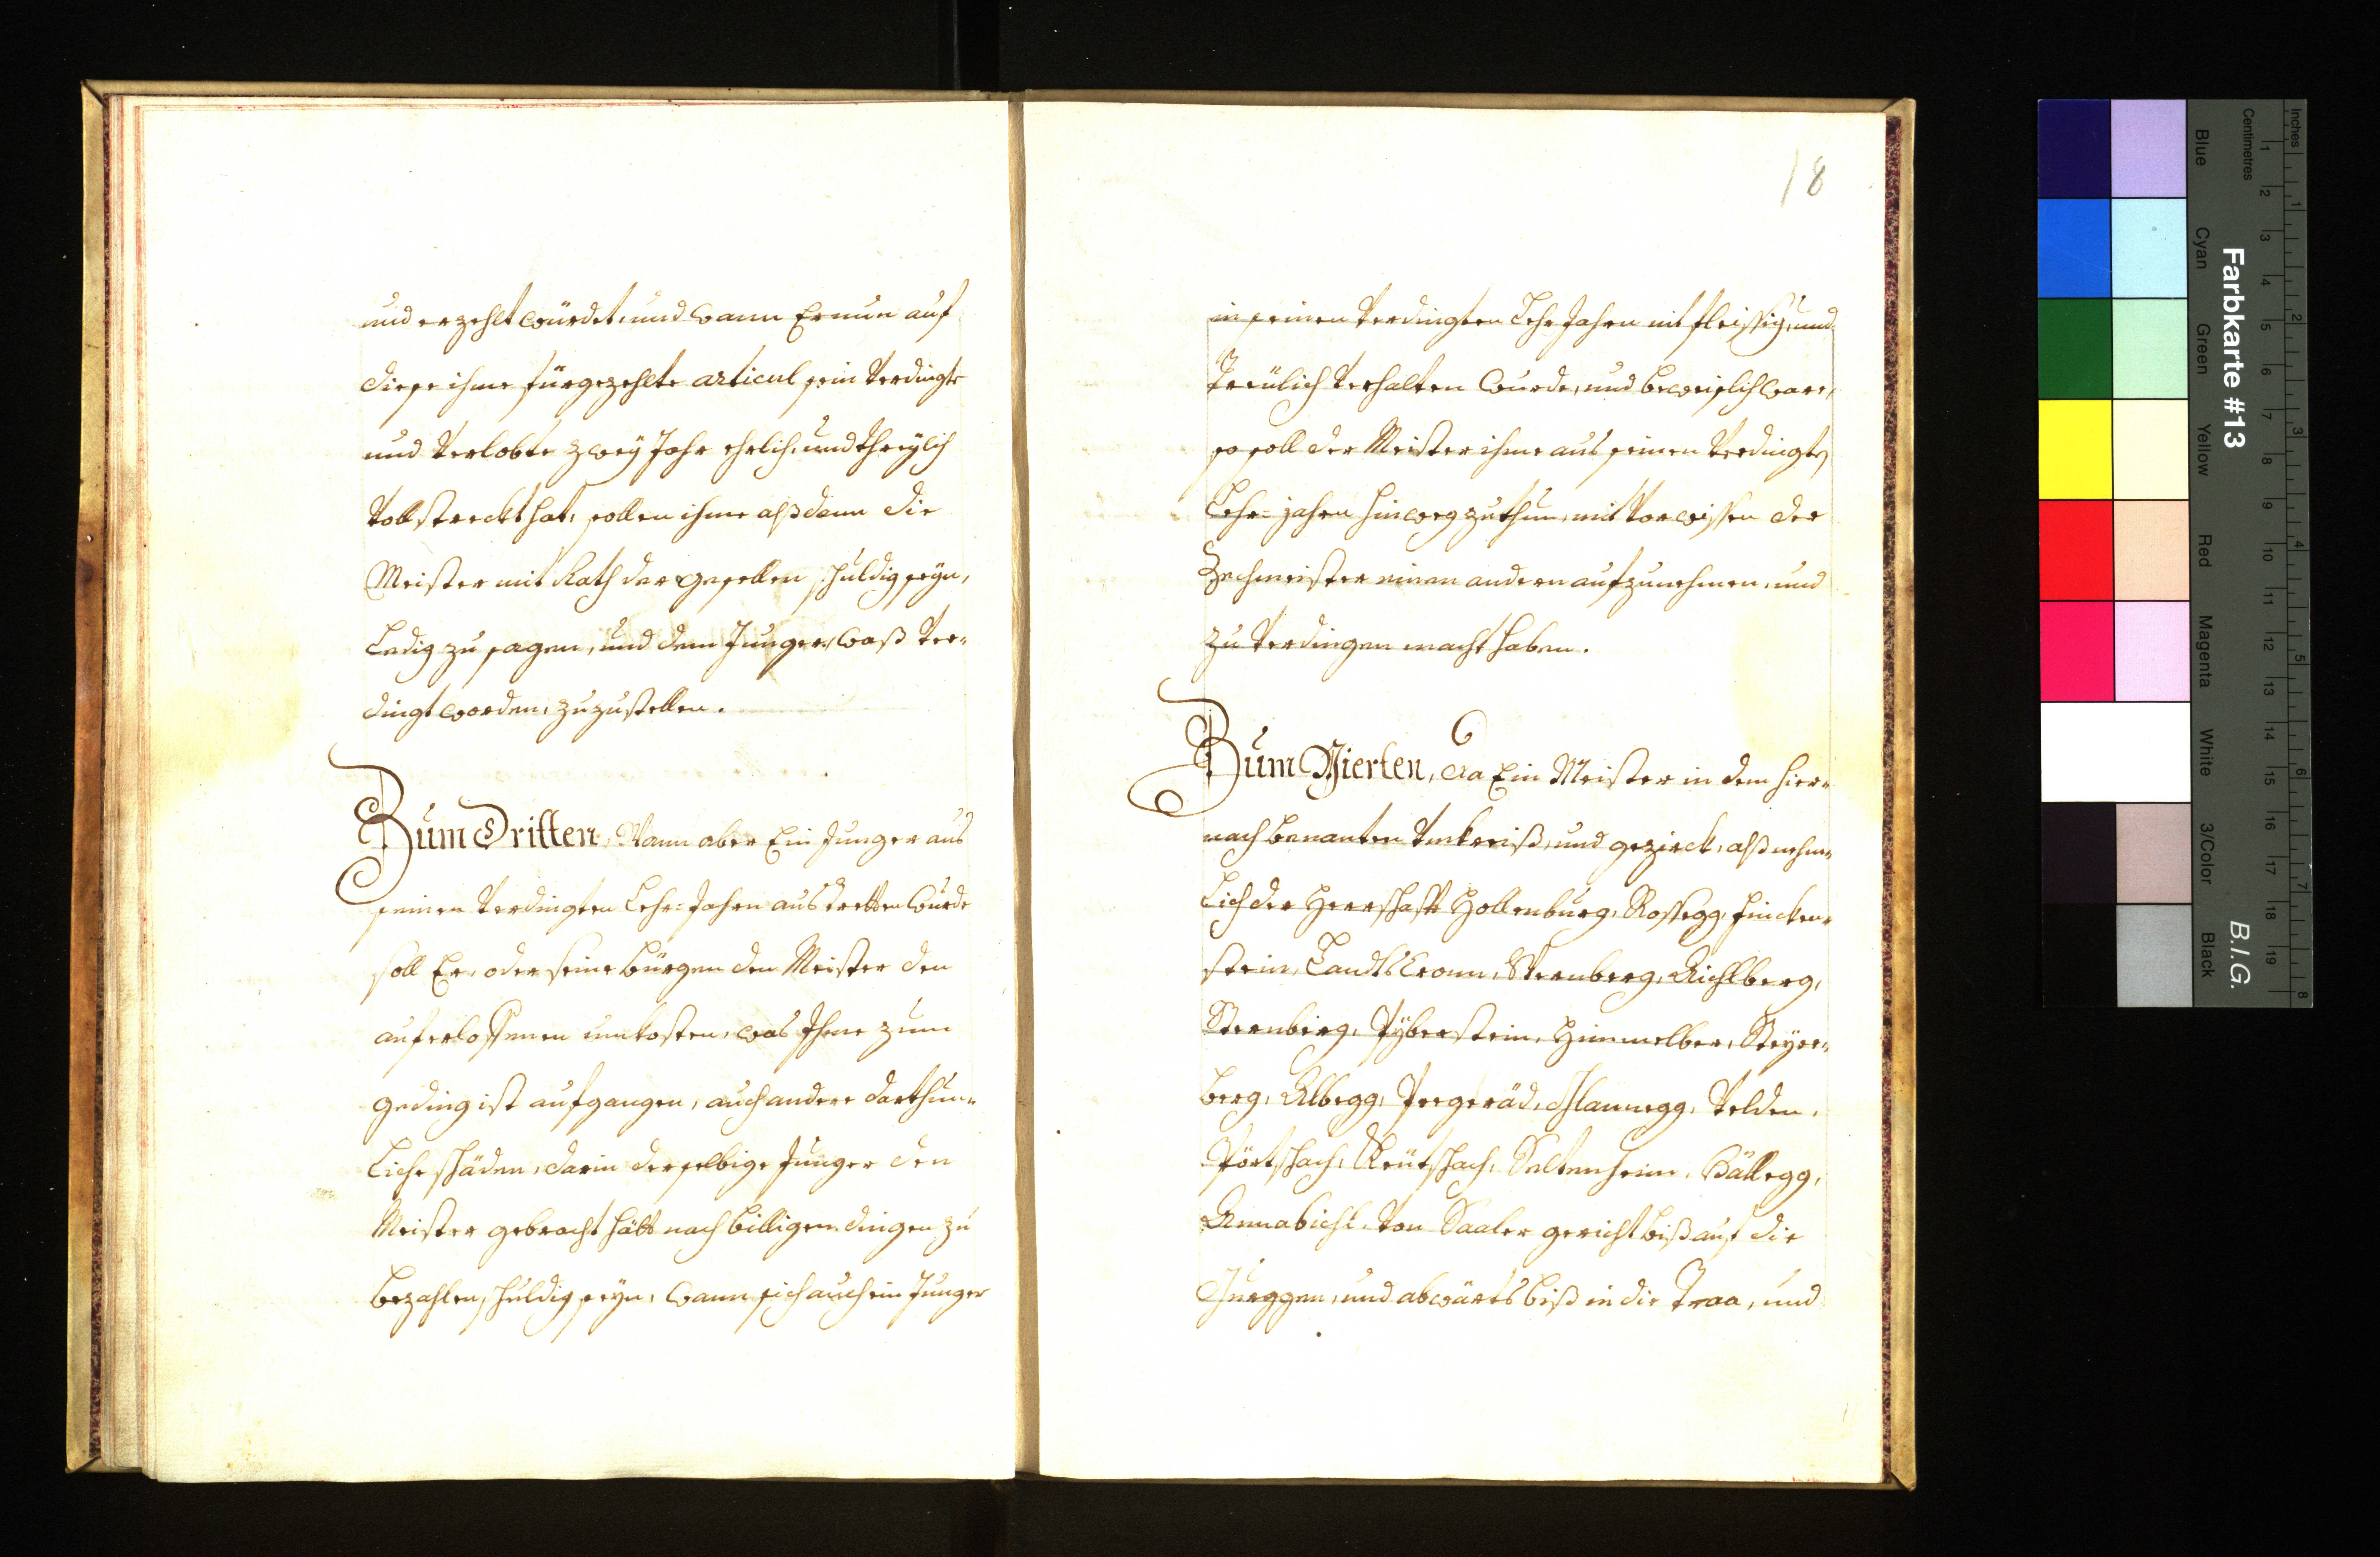 und erzehlt würdet, und wann Er nun auf
diese ihme fürgezehlte articul sein verdingte
und verlobte zwey Jahr ehrlich, und threylich
vollstreckt hat, sollen ihme alßdann die
Meister mit Rath der gesellen schuldig seyn,
Ledig zu sagen, und dem Junger, waß ver-
dingt worden, zuzustellen.
Zum Dritten, Wann aber Ein Junger aus
seinen verdingten Lehr-Jahren austretten wurde
soll Er, oder seine bürgen den Meister den
auferloffenen unkosten, was Ihme zum
geding ist aufgangen, auch andere darthun-
Liche schäden, darin derselbige Junger den
Meister gebracht hätt nach billigen dingen zu
bezahlen, schuldig seyn, wann sich auch ein Junger
18
in seinen verdingten Lehr Jahren nit fleissig, und
Treülich verhalten wurde, und beweislich ware,
so soll der Meister ihme aus seinen verdingten
Lehr-jahren hinweg zuthun, mit vorwissen der
Zechmeister einen andern aufzunehmen, und
zu verdingen macht haben.
Zum Vierten, da Ein Meister in dem hier-
nach benanten vmkreiß, und gezirck, alß nehm-
Lich der Herrschafft Hollenburg, Rossegg, Fincken-
stein, Landtscronn, Wernberg, Aichlberg,
Sternberg, Pyberstein, Himmelber, Steyer-
berg, Albegg, Prägeräd, Glannegg, Velden,
Pörtschach, Keütschach, Seltenheim, Hällegg,
Annabichl, von Saaler gericht biß auf die
Gurggen, und abwärts biß in die Traa, und